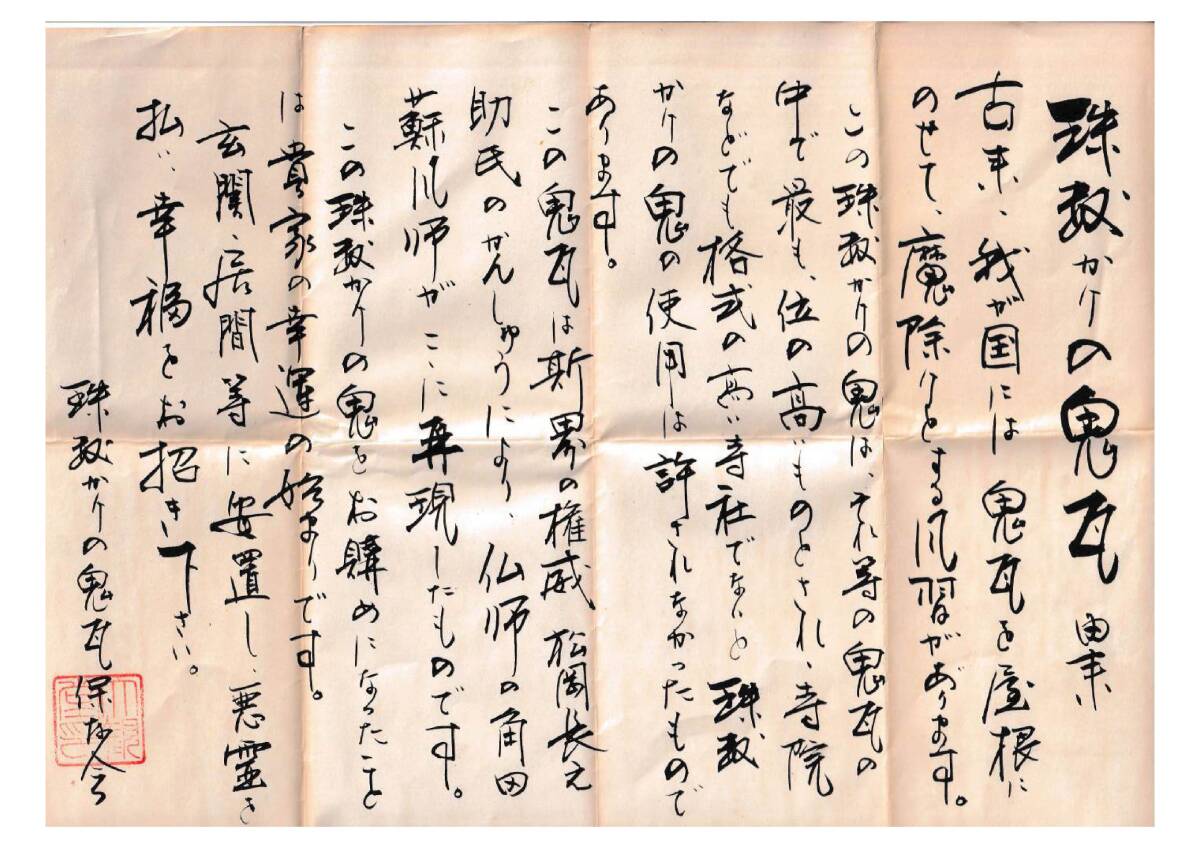 珠数かけの鬼瓦 由来
古来、我が国には鬼瓦を屋根に
のせて、魔除けとする風習があります。
この珠数かけの鬼は、それ等の鬼瓦の
中で最も、位の高いものとされ、寺院
などでも格式の高い寺社でないと珠数
かけの鬼の使用は許されなかったもので
あります。
この鬼瓦は斯界の権威 松岡長之
助氏のかんしゅうにより、仏師の角田
蘇風師がここに再現したものです。
この珠数かけの鬼をお購めになったこと
は貴家の幸運の始まりです。
玄関、居間等に安置し、悪霊を
払い幸福をお招き下さい。
珠数かけの鬼瓦保存会